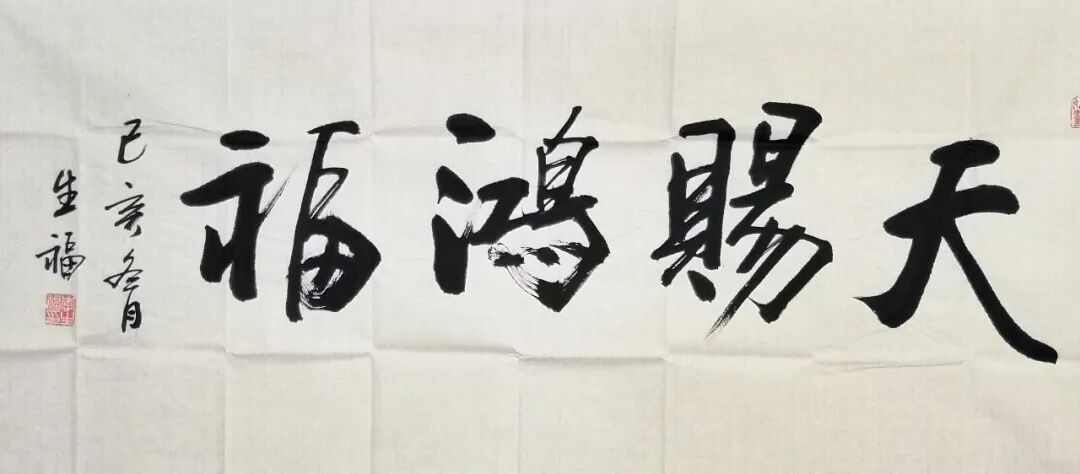 天赐鸿福
己亥冬月
生福